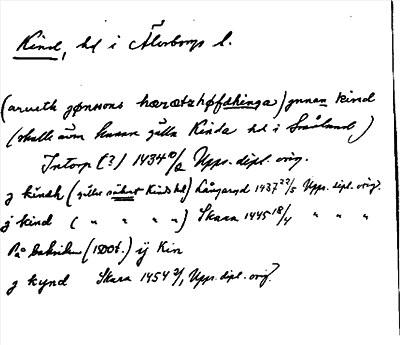 Kind, hd i Älvsborgs l.
(arueth gønssons hæretzhøfdhinga) gynan kind
(skulle även kunna gälla Kinda hd i Småland)
Intorp (?) 1434 10/2 Upps. dipl. orig.
j kindh (gäller säkert Kinds hd) Långaryd 1437 22/5 Upps. dipl. orig.
j kind ( " " " " ) Skara 1445 18/4 " " "
På baksidan (1500t.) ij Kin
j kynd Skara 1454 2/1 Upps. dipl. orig.